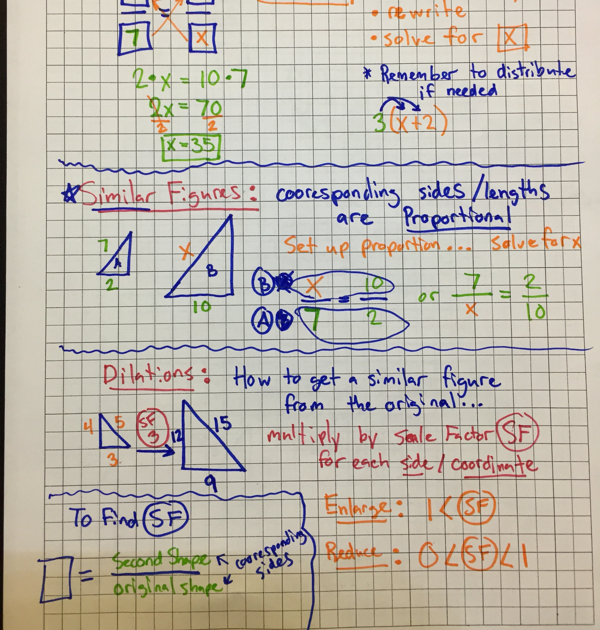 • rewrite
7 x
• solve for x
2•x = 10•7
* Remember to distribute
if needed
2x = 70
2 2
3(x+2)
x=35
Similar Figures: cooresponding sides/lengths
are Proportional
Set up proportion... solve for x
7
A
2
x
B
10
B x = 10
A 7 2
or 7 = 2
x 10
Dilations: How to get a similar figure
from the original...
4 5
3
SF
3
12 15
9
multiply by Scale Factor SF
for each side/coordinate
To Find SF
= Second Shape
original shape
cooresponding
sides
Enlarge: 1 < SF
Reduce: 0 < SF < 1